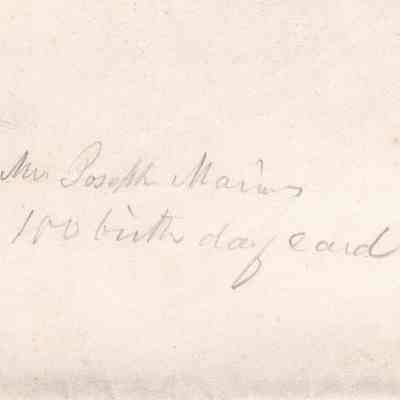 Mr Joseph Mains
100 birth day card